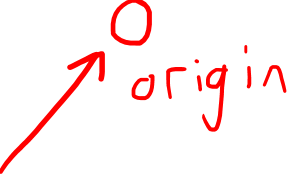 O
origin